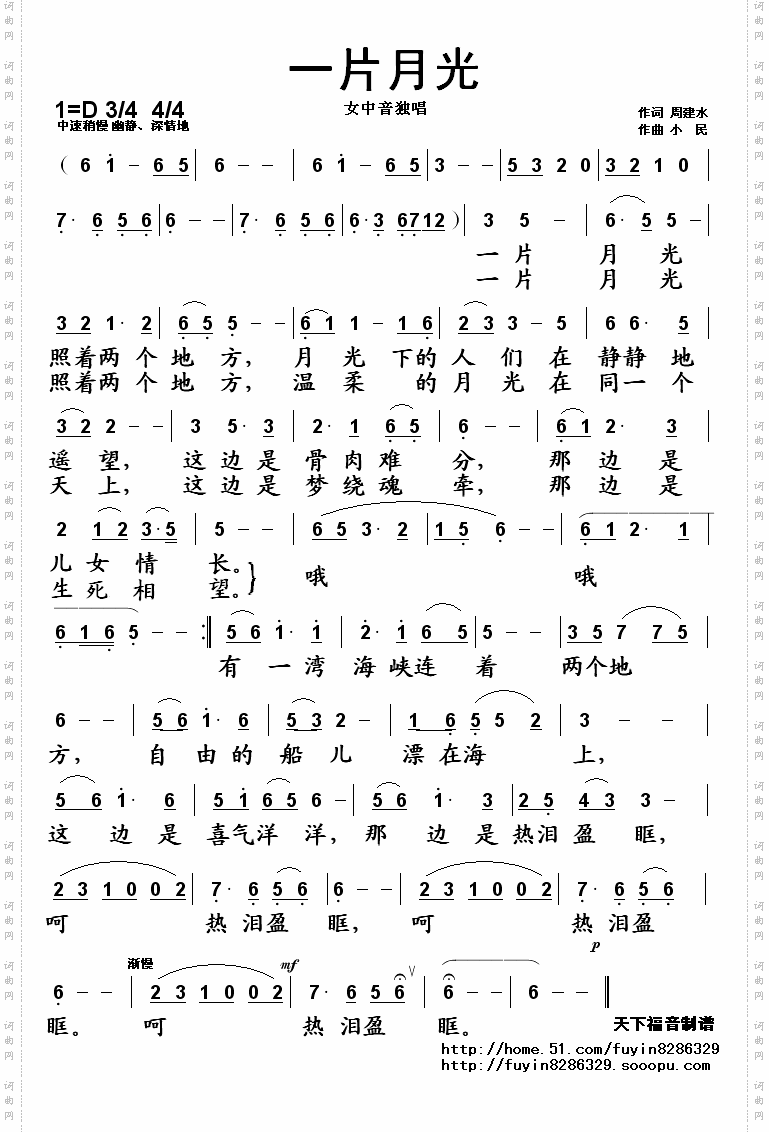 一片月光
1=D 3/4 4/4
女中音独唱
作词 周建水
中速稍慢 幽静、深情地
作曲 小 民
( 6 1 - 6 5 | 6 - - | 6 1 - 6 5 | 3 - - | 5 3 2 0 | 3 2 1 0 |
7· 6 5 6 | 6 - - | 7· 6 5 6 | 6·3 6712 ) 3 5 - | 6· 5 5 - |
一 片 月 光
一 片 月 光
3 2 1· 2 | 6 5 5 - - | 6 1 1 - 1 6 | 2 3 3 - 5 | 6 6· 5 |
照着两 个 地 方, 月 光 下的 人 们 在 静静 地
照着两 个 地 方, 温 柔 的 月 光 在 同一 个
3 2 2 - - | 3 5· 3 | 2· 1 6 5 | 6 - - | 6 1 2· 3 |
遥 望, 这 边 是 骨 肉 难 分, 那 边 是
天 上, 这 边 是 梦 绕 魂 牵, 那 边 是
2 1 2 3·5 | 5 - - | 6 5 3· 2 | 1 5 6 - - | 6 1 2· 1 |
儿 女 情 长。 哦 哦
生 死 相 望。}
6 1 6 5 - - :‖ 5 6 1· 1 | 2· 1 6 5 | 5 - - | 3 5 7 7 5 |
有 一 湾 海 峡连 着 两个地
6 - - | 5 6 1· 6 | 5 3 2 - | 1 6 5 5 2 | 3 - - |
方, 自 由 的 船 儿 漂 在海 上,
5 6 1· 6 | 5 1 6 5 6 - | 5 6 1· 3 | 2 5 4 3 3 - |
这 边 是 喜气洋 洋, 那 边 是 热泪 盈 眶,
2 3 1 0 0 2 | 7· 6 5 6 | 6 - - | 2 3 1 0 0 2 | 7· 6 5 6 |
呵 热 泪盈 眶, 呵 热 泪盈
p
渐慢 mf
6 - - | 2 3 1 0 0 2 | 7· 6 5 6 | 6 - - 6 - - ‖
眶。 呵 热 泪盈 眶。
天下福音制谱
http://home.51.com/fuyin8286329
http://fuyin8286329.sooopu.com
词曲网